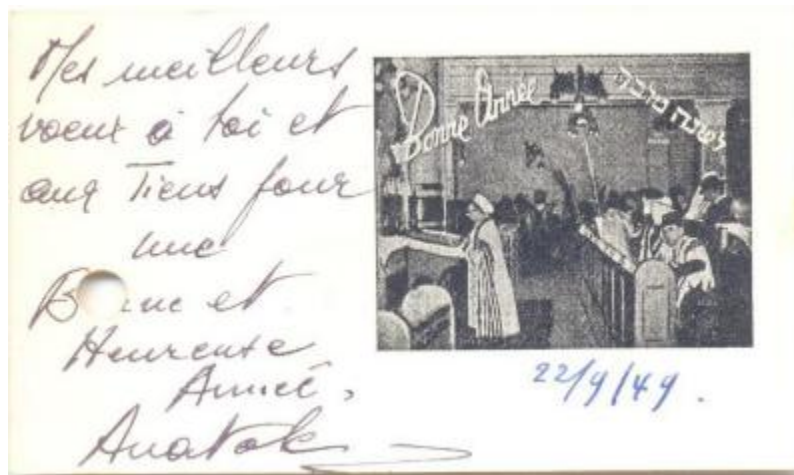 Mes meilleurs
voeux à toi et
aux Tiens pour
une
B ne et
Heureuse
Année,
Anatole
Bonne Année
לשנה טובה
22/9/49.